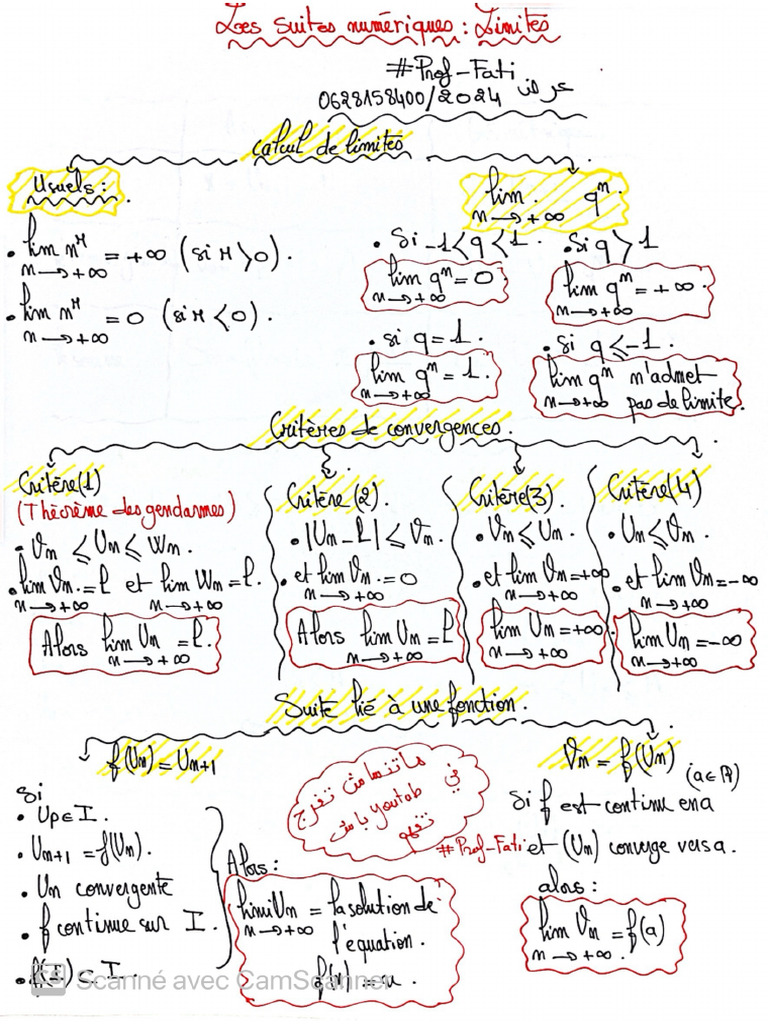 Les suites numériques : Limites
#Prof-Fati
0628158400/2024
calcul de limites
Usuels :
lim q^n
n→+∞
• lim n^r = +∞ (si r > 0).
n→+∞
• lim n^r = 0 (si r < 0).
n→+∞
• Si -1 < q < 1.
lim q^n = 0
n→+∞
• Si q > 1
lim q^n = +∞.
n→+∞
• si q = 1.
lim q^n = 1.
n→+∞
• si q ≤ -1.
lim q^n n'admet
n→+∞ pas de limite.
Critères de convergences.
Critère(1)
(Théorème des gendarmes)
• Vn ≤ Un ≤ Wn.
• lim Vn = l et lim Wn = l.
n→+∞ n→+∞
Alors lim Un = l.
n→+∞
Critère(2).
• |Un - l| ≤ Vn.
• et lim Vn = 0
n→+∞
Alors lim Un = l
n→+∞
Critère(3)
• Vn ≤ Un.
• et lim Vn = +∞
n→+∞
lim Un = +∞
n→+∞
Critère(4)
• Un ≤ Vn.
• et lim Vn = -∞
n→+∞
lim Un = -∞
n→+∞
Suite lié à une fonction.
f(Un) = Un+1
Si
• Up ∈ I.
• Un+1 = f(Un).
• Un convergente
• f continue sur I.
• f(I) ⊂ I.
Alors :
limi Un = la solution de
n→+∞ l'équation.
f(x) = x.
ما تنساش تفرج
في youtob باش
تفهم
#Prof-Fati
Vn = f(Un)
(a ∈ ℝ)
Si f est continue en a
et (Un) converge vers a.
alors :
lim Vn = f(a)
n→+∞.
CS Scanné avec CamScanner